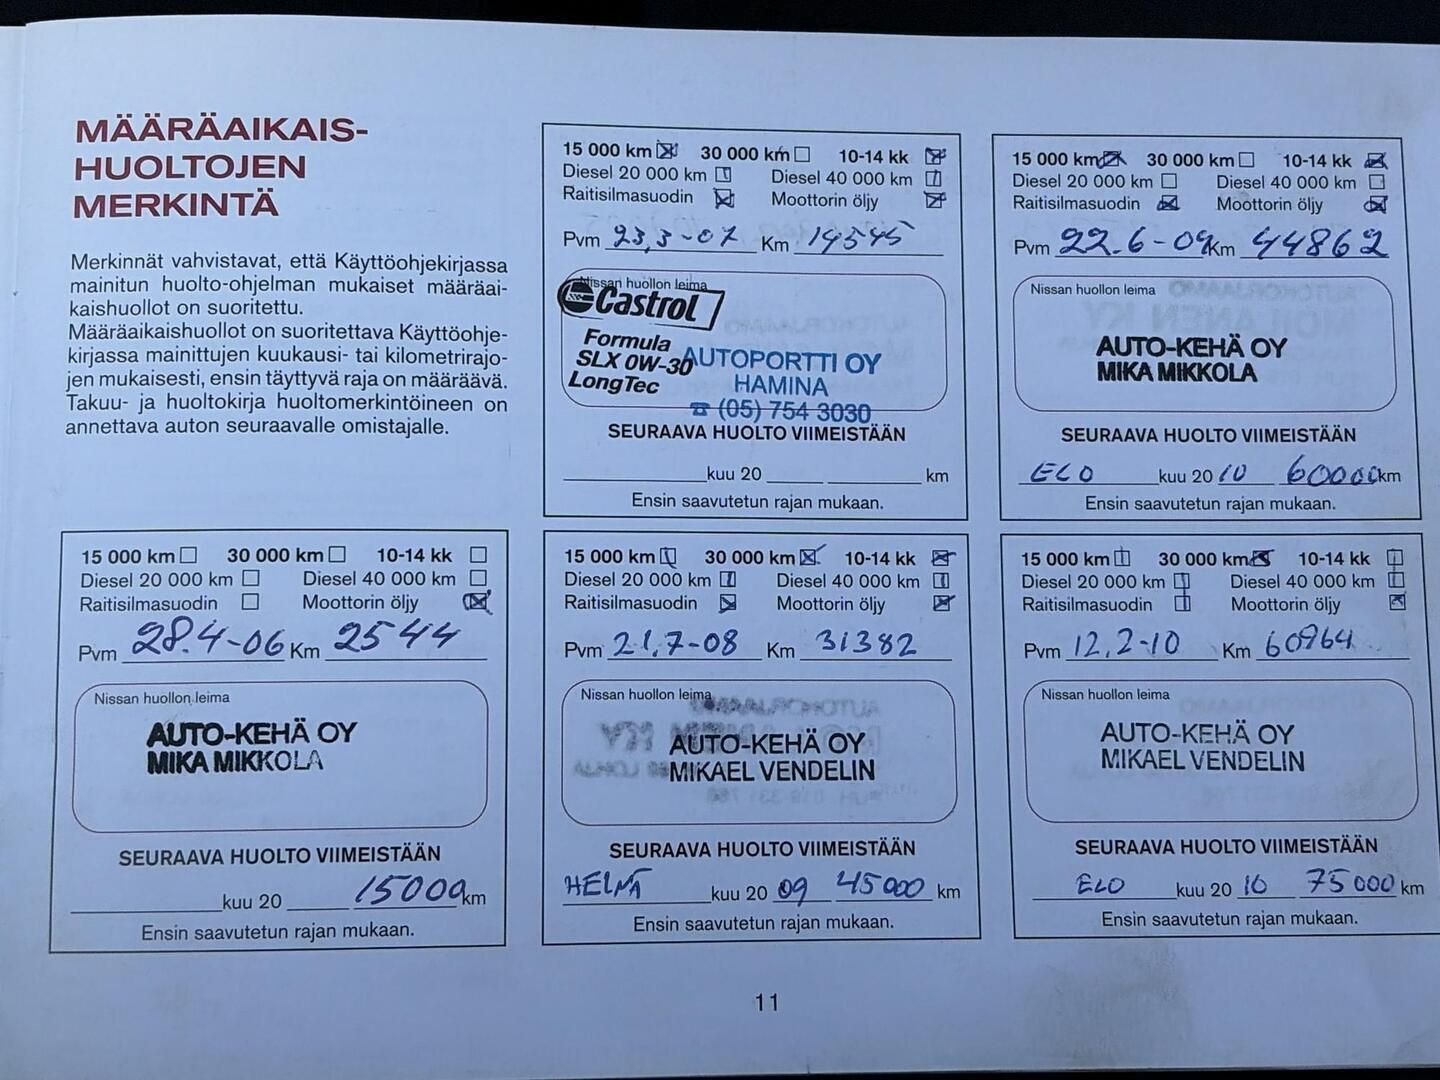 MÄÄRÄAIKAIS-
HUOLTOJEN
MERKINTÄ
Merkinnät vahvistavat, että Käyttöohjekirjassa
mainitun huolto-ohjelman mukaiset määräai-
kaishuollot on suoritettu.
Määräaikaishuollot on suoritettava Käyttöohje-
kirjassa mainittujen kuukausi- tai kilometrirajo-
jen mukaisesti, ensin täyttyvä raja on määräävä.
Takuu- ja huoltokirja huoltomerkintöineen on
annettava auton seuraavalle omistajalle.
15 000 km 30 000 km 10-14 kk
Diesel 20 000 km Diesel 40 000 km
Raitisilmasuodin Moottorin öljy
Pvm 28.4-06 Km 2544
Nissan huollon leima
AUTO-KEHÄ OY
MIKA MIKKOLA
SEURAAVA HUOLTO VIIMEISTÄÄN
kuu 20 15000 km
Ensin saavutetun rajan mukaan.
15 000 km 30 000 km 10-14 kk
Diesel 20 000 km Diesel 40 000 km
Raitisilmasuodin Moottorin öljy
Pvm 23,3-07 Km 14545
Nissan huollon leima
Castrol
Formula
SLX 0W-30
LongTec
AUTOPORTTI OY
HAMINA
☎ (05) 754 3030
SEURAAVA HUOLTO VIIMEISTÄÄN
kuu 20 km
Ensin saavutetun rajan mukaan.
15 000 km 30 000 km 10-14 kk
Diesel 20 000 km Diesel 40 000 km
Raitisilmasuodin Moottorin öljy
Pvm 21,7-08 Km 31382
Nissan huollon leima
AUTO-KEHÄ OY
MIKAEL VENDELIN
SEURAAVA HUOLTO VIIMEISTÄÄN
HEINÄ kuu 20 09 45000 km
Ensin saavutetun rajan mukaan.
15 000 km 30 000 km 10-14 kk
Diesel 20 000 km Diesel 40 000 km
Raitisilmasuodin Moottorin öljy
Pvm 22.6-09 Km 44862
Nissan huollon leima
AUTO-KEHÄ OY
MIKA MIKKOLA
SEURAAVA HUOLTO VIIMEISTÄÄN
ELO kuu 20 10 60000 km
Ensin saavutetun rajan mukaan.
15 000 km 30 000 km 10-14 kk
Diesel 20 000 km Diesel 40 000 km
Raitisilmasuodin Moottorin öljy
Pvm 12,2-10 Km 60964
Nissan huollon leima
AUTO-KEHÄ OY
MIKAEL VENDELIN
SEURAAVA HUOLTO VIIMEISTÄÄN
ELO kuu 20 10 75000 km
Ensin saavutetun rajan mukaan.
11